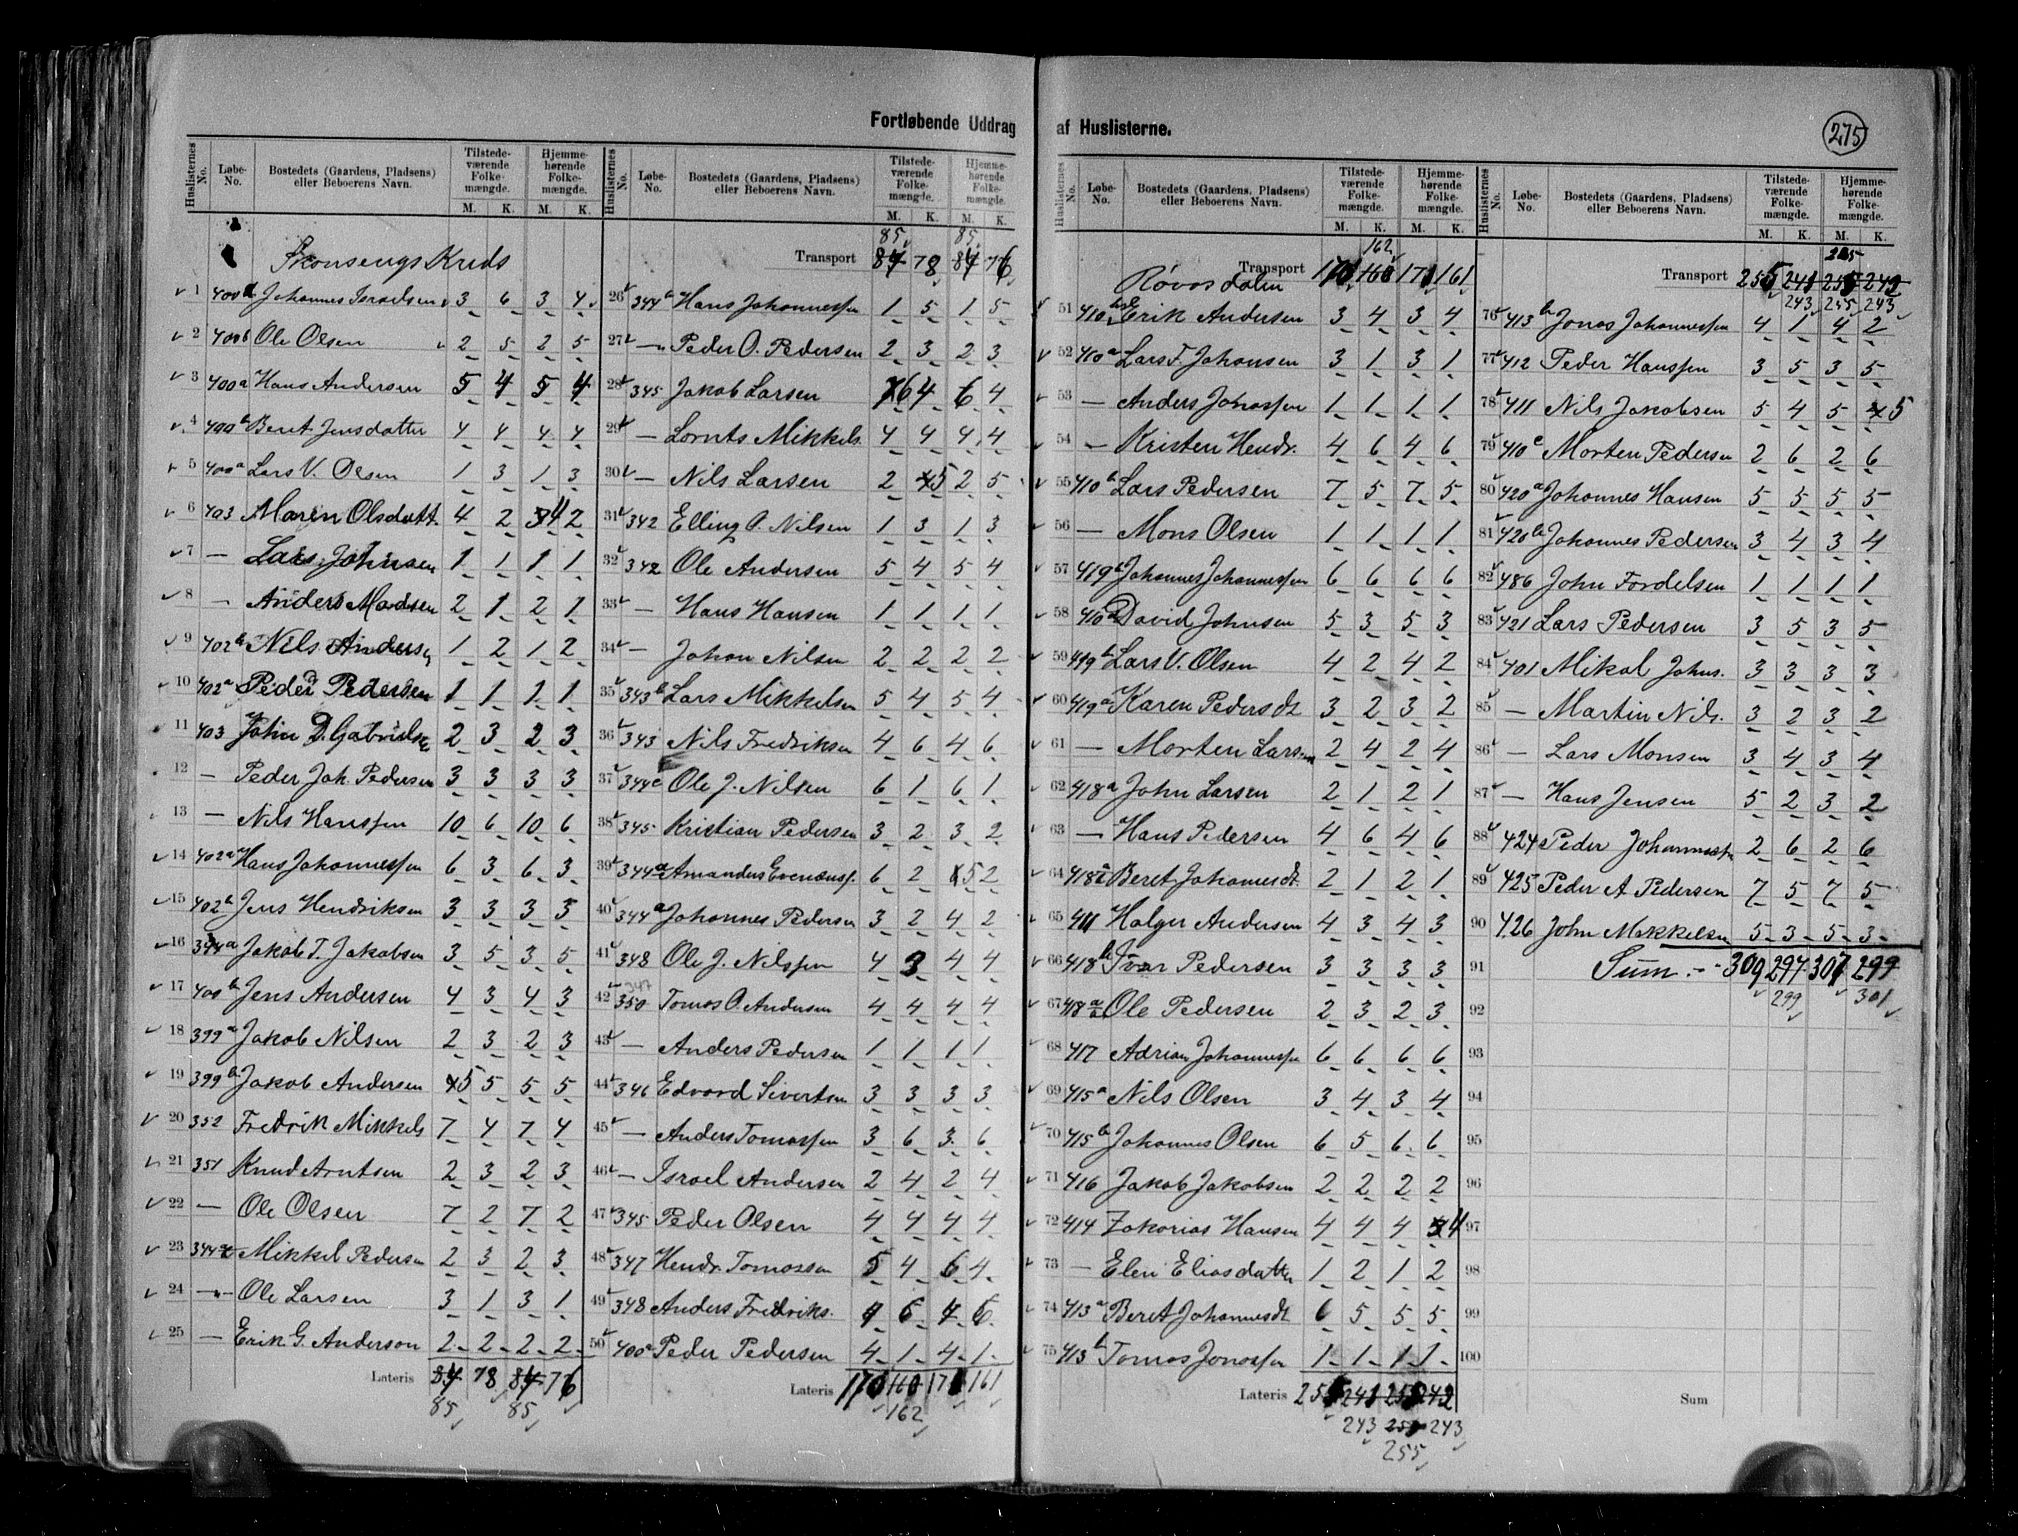 Fortløbende Uddrag af Huslisterne.
275
Huslisternes No. Løbe-No. Bostedets (Gaardens, Pladsens) eller Beboerens Navn. Tilstedeværende Folkemængde. Hjemmehørende Folkemængde.
M. K. M. K.
Skonsengs Kreds
1 400 Johannes Israelsen 3 6 3 4
2 400b Ole Olsen 2 5 2 5
3 400a Hans Andersen 5 4 5 4
4 400b Beret Jensdatter 4 4 4 4
5 400a Lars V. Olsen 1 3 1 3
6 403 Maren Olsdatt. 4 2 4 2
7 — Lars Johnsen 1 1 1 1
8 — Anders Madsen 2 1 2 1
9 402b Nils Anders 1 2 1 2
10 402a Peder Pedersen 1 1 1 1
11 403 John D. Gabriels 2 3 2 3
12 — Peder Joh. Pedersen 3 3 3 3
13 — Nils Hanssen 10 6 10 6
14 402a Hans Johannessen 6 3 6 3
15 402b Jens Hendriksen 3 3 3 3
16 344a Jakob T. Jakobsen 3 5 3 5
17 400b Jens Andersen 4 3 4 3
18 399a Jakob Nilsen 2 3 2 3
19 399b Jakob Andersen 5 5 5 5
20 352 Fredrik Mikkels 7 4 7 4
21 351 Knud Arntsen 2 3 2 3
22 — Ole Olsen 7 2 7 2
23 344 Mikkel Pedersen 2 3 2 3
24 — Ole Larsen 3 1 3 1
25 — Erik G. Anderson 2 2 2 2
Lateris 84 78 84 76
85 85
85 85
Transport 84 78 84 76
26 344b Hans Johannessen 1 5 1 5
27 — Peder O. Pedersen 2 3 2 3
28 345 Jakob Larsen 6 4 6 4
29 — Lornts Mikkels. 4 4 4 4
30 — Nils Larsen 2 5 2 5
31 342 Elling A. Nilsen 1 3 1 3
32 342 Ole Andersen 5 4 5 4
33 — Hans Hansen 1 1 1 1
34 — Johan Nilsen 2 2 2 2
35 343b Lars Mikkelsen 5 4 5 4
36 343 Nils Fredriksen 4 6 4 6
37 344c Ole J. Nilsen 6 1 6 1
38 345 Kristian Pedersen 3 2 3 2
39 344a Amandus 6 2 5 2
40 344a Johannes Pedersen 3 2 4 2
41 348 Ole J. Nilssen 4 3 4 4
347
42 350 Tomas O. Andersen 4 4 4 4
43 — Anders Pedersen 1 1 1 1
44 346 Edvard Sivertsen 3 3 3 3
45 — Anders Tomassen 3 6 3 6
46 — Israel Andersen 2 4 2 4
47 345 Peder Olsen 4 4 4 4
48 347 Hendr. Tomassen 5 4 6 4
49 348 Anders Fredriks. 4 6 4 6
50 400a Peder Pedersen 4 1 4 1
Lateris 170 160 171 161
162
162
Transport 170 160 171 161
Røvasdalen
51 410 Erik Andersen 3 4 3 4
52 410a Lars F. Johansen 3 1 3 1
53 — Anders Jonassen 1 1 1 1
54 — Kristen Hendr. 4 6 4 6
55 410b Lars Pedersen 7 5 7 5
56 — Mons Olsen 1 1 1 1
57 419a Johannes Johannessen 6 6 6 6
58 410d David Johnsen 5 3 5 3
59 419b Lars V. Olsen 4 2 4 2
60 419a Karen Pedersdt 3 2 3 2
61 — Morten Larsen 2 4 2 4
62 418a John Larsen 2 1 2 1
63 — Hans Pedersen 4 6 4 6
64 418a Beret Johannesdt. 2 1 2 1
65 411 Holger Andersen 4 3 4 3
66 418b Ivar Pedersen 3 3 3 3
67 418a Ole Pedersen 2 3 2 3
68 417 Adrian Johannessen 6 6 6 6
69 415a Nils Olsen 3 4 3 4
70 415b Johannes Olsen 6 5 6 6
71 416 Jakob Jakobsen 2 2 2 2
72 414 Zakarias Hansen 4 4 4 4
73 — Elen Eliasdatter 1 2 1 2
74 413a Beret Johannesdt 6 5 5 5
75 413b Tomas Jonassen 1 1 1 1
Lateris 255 241 255 242
243 255 243
255
255
Transport 255 241 255 243
243 255 243
76 413b Jonas Johannessen 4 1 4 2
77 412 Peder Hanssen 3 5 3 5
78 411 Nils Jakobsen 5 4 5 5
79 410c Morten Pedersen 2 6 2 6
80 420a Johannes Hansen 5 5 5 5
81 420b Johannes Pedersen 3 4 3 4
82 486 John Fordelsen 1 1 1 1
83 421 Lars Pedersen 3 5 3 5
84 401 Mikal Johns. 3 3 3 3
85 — Martin Nils. 3 2 3 2
86 — Lars Monsen 3 4 3 4
87 — Hans Jensen 5 2 3 2
88 424 Peder Johannessen 2 6 2 6
89 425 Peder A. Pedersen 7 5 7 5
90 426 John Mikkelsen 5 3 5 3
91 Sum. 309 297 307 299
92 299 301
93
94
95
96
97
98
99
100
Sum